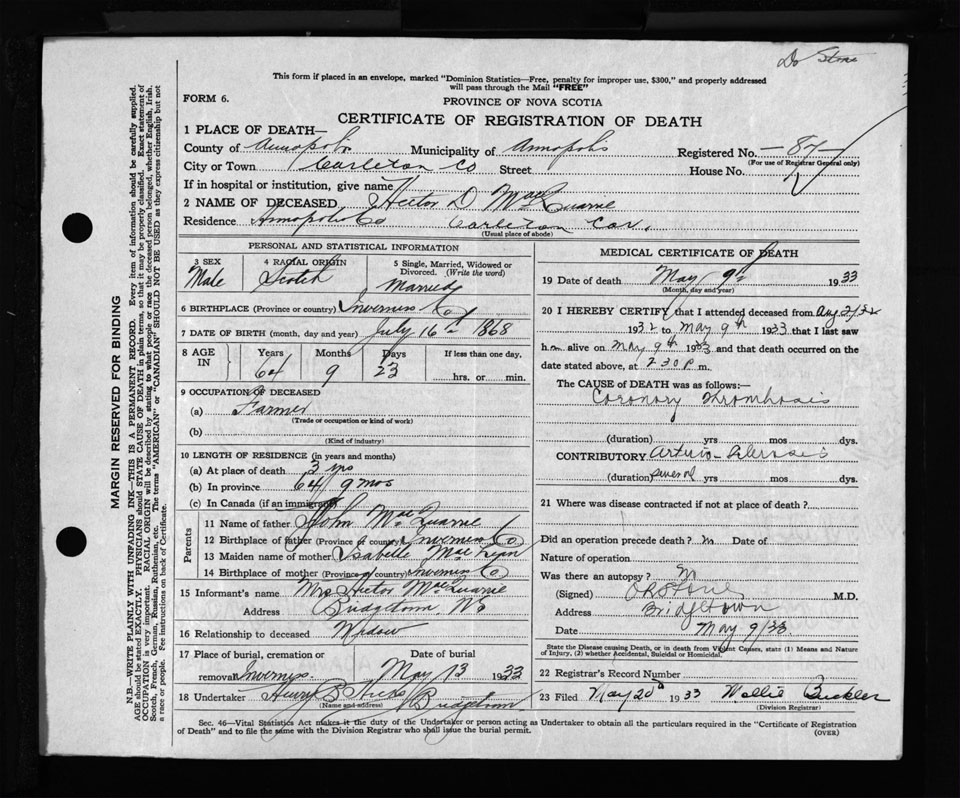 Dr Stone
This form if placed in an envelope, marked "Dominion Statistics—Free, penalty for improper use, $300," and properly addressed
will pass through the Mail "FREE"
FORM 6.
PROVINCE OF NOVA SCOTIA
CERTIFICATE OF REGISTRATION OF DEATH
1 PLACE OF DEATH—
County of Annapolis Municipality of Annapolis Registered No. —87—
(For use of Registrar General only)
City or Town Carleton Co Street House No.
If in hospital or institution, give name
2 NAME OF DECEASED Hector D MacQuarrie
Residence Annapolis Co Carleton Cor.
(Usual place of abode)
PERSONAL AND STATISTICAL INFORMATION
3 SEX 4 RACIAL ORIGIN 5 Single, Married, Widowed or
Divorced. (Write the word)
Male Scotch Married
6 BIRTHPLACE (Province or country) Inverness Co
7 DATE OF BIRTH (month, day and year) July 16th 1868
8 AGE IN Years Months Days If less than one day,
64 9 23 hrs. or min.
9 OCCUPATION OF DECEASED
(a) Farmer
(Trade or occupation or kind of work)
(b)
(Kind of industry)
10 LENGTH OF RESIDENCE (in years and months)
(a) At place of death 3 yrs
(b) In province 64/9 mos
(c) In Canada (if an immigrant)
Parents
11 Name of father John MacQuarrie
12 Birthplace of father (Province of country) Inverness Co
13 Maiden name of mother Isabelle Mac
14 Birthplace of mother (Province of country) Inverness Co
15 Informant's name Mrs Hector MacQuarrie
Address Bridgetown, NS
16 Relationship to deceased Widow
17 Place of burial, cremation or Date of burial
removal Inverness. May 13 1933
18 Undertaker Henry B Hicks Bridgetown
(Name and address)
MEDICAL CERTIFICATE OF DEATH
19 Date of death May 9th 1933
(Month, day and year)
20 I HEREBY CERTIFY that I attended deceased from Aug
1932 to May 9th 1933 that I last saw
him alive on May 9th 1933 and that death occurred on the
date stated above, at 2 30 P m.
The CAUSE OF DEATH was as follows:—
Coronary Thrombosis
(duration) yrs mos dys.
CONTRIBUTORY Arterio-sclerosis
(duration) several yrs mos dys.
21 Where was disease contracted if not at place of death?
Did an operation precede death? Date of
Nature of operation
Was there an autopsy?
(Signed) Stone M.D.
Address Bridgetown
Date May 9/33.
State the Disease causing Death, or in death from Violent Causes, state (1) Means and Nature
of Injury, (2) whether Accidental, Suicidal or Homicidal.
22 Registrar's Record Number
23 Filed May 20th 1933 Wallie Buckler
(Division Registrar)
Sec. 46—Vital Statistics Act makes it the duty of the Undertaker or person acting as Undertaker to obtain all the particulars required in the "Certificate of Registration
of Death" and to file the same with the Division Registrar who shall issue the burial permit.
(OVER)
MARGIN RESERVED FOR BINDING
N.B.—WRITE PLAINLY WITH UNFADING INK—THIS IS A PERMANENT RECORD. Every item of information should be carefully supplied.
AGE should be stated EXACTLY. PHYSICIANS should STATE CAUSE OF DEATH in plain terms, so that it may be properly classified. Exact statement of
OCCUPATION is very important. RACIAL ORIGIN will be described by stating to what people or race the deceased person belonged, whether English, Irish,
Scotch, French, German, Russian, Ruthenian, etc. The terms "AMERICAN" or "CANADIAN" SHOULD NOT BE USED as they express citizenship but not
a race or people. Fee instructions on back of Certificate.